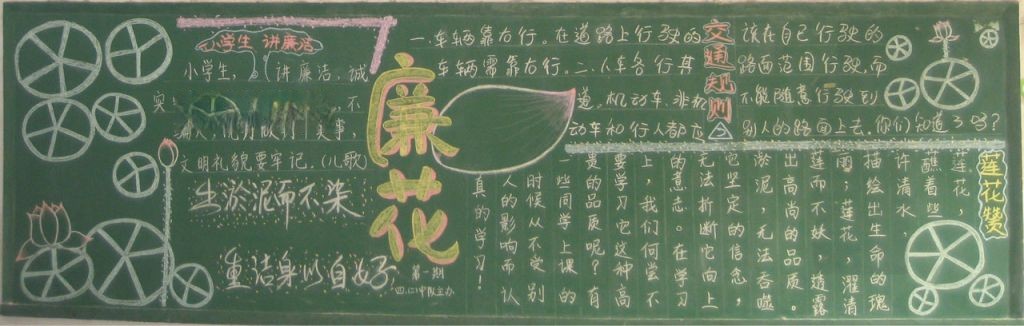 小学生 讲廉洁
小学生，讲廉洁，诚
实
不
文明礼貌要牢记。（儿歌）
出淤泥而不染
重洁身以自好
廉花
第一期
四.（二）中队主办
交通规则
一.车辆靠右行。在道路上行驶的
车辆需靠右行。二.人车各行其
道。机动车、非机
动车和行人都应
该在自己行驶的
路面范围行驶，而
不能随意行驶到
别人的路面上去。你们知道了吗？
莲花赞
莲花，
蘸着些
许清水，
描绘出生命的瑰
丽；莲花，濯清
莲而不妖，透露
出高尚的品质。
淤泥，无法吞噬
它坚定的信念，
无法折断它向上
的意志。在学习
上，我们何尝不
要学习它这种高
贵的品质呢？有
一些同学上课的
时候从不受别
人的影响而认
真的学习！